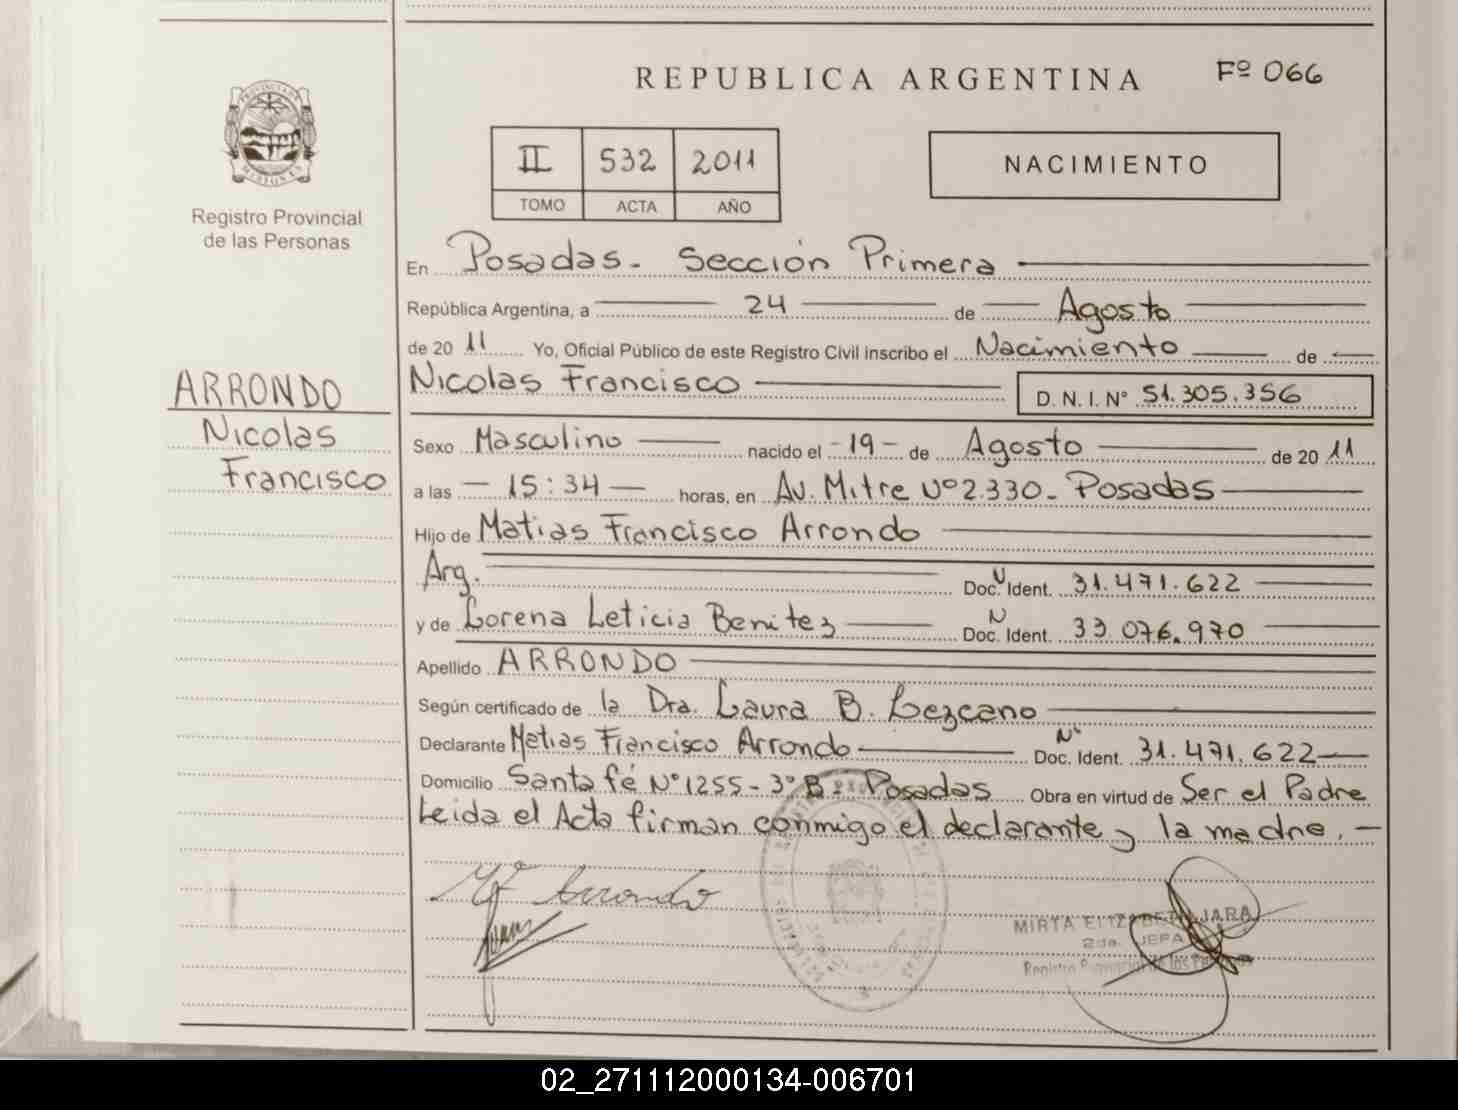 REPUBLICA ARGENTINA
Fº 066
II 532 2011
TOMO ACTA AÑO
NACIMIENTO
PROVINCIA DE MISIONES
Registro Provincial
de las Personas
ARRONDO
Nicolas
Francisco
En Posadas - Sección Primera
República Argentina, a 24 de Agosto
de 20 11 Yo, Oficial Público de este Registro Civil inscribo el Nacimiento de
Nicolas Francisco D. N. I. N° 51.305.356
Sexo Masculino nacido el -19- de Agosto de 20 11
a las - 15:34 - horas, en Av. Mitre Nº 2.330 - Posadas
Hijo de Matias Francisco Arrondo
Arg. Doc. N Ident. 31.471.622
y de Lorena Leticia Benitez Doc. N Ident. 33.076.970
Apellido ARRONDO
Según certificado de la Dra. Laura B. Lezcano
Declarante Matias Francisco Arrondo Doc. N° Ident. 31.471.622
Domicilio Santa fé N° 1255 - 3° B - Posadas Obra en virtud de Ser el Padre
Leida el Acta firman conmigo el declarante y la madre. -
Arrondo
MIRTA JARA
2da. JEFA
Registro Provincial de las Personas
02_271112000134-006701